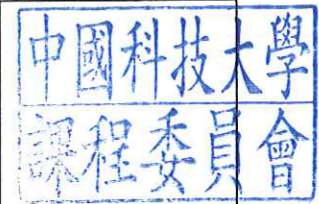 中國科技大學
課程委員會